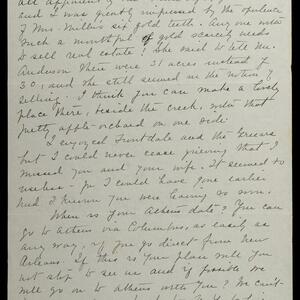 and I was greatly impressed by the opulence
of Mrs. Miller's six gold teeth. Any one with
such a mouthful of gold scarcely needs
to sell real estate! She said to tell Mr.
Anderson there were 31 acres instead of
30, and she still seemed in the notion of
selling. I think you can make a lovely
place there, beside the creek, with that
pretty apple-orchard on one side.
I enjoyed Frontdale and the
but I could never cease grieving that I
missed you and your wife. It seemed to
useless - for I could have gone earlier
had I known you were leaving so soon.
When is your Athens date? You can
go to Athens via Columbus, as easily as
any way, if you go direct from New
Orleans. If this is your plan will you
not stop to see us and if possible we
will go on to Athens with you? We can't